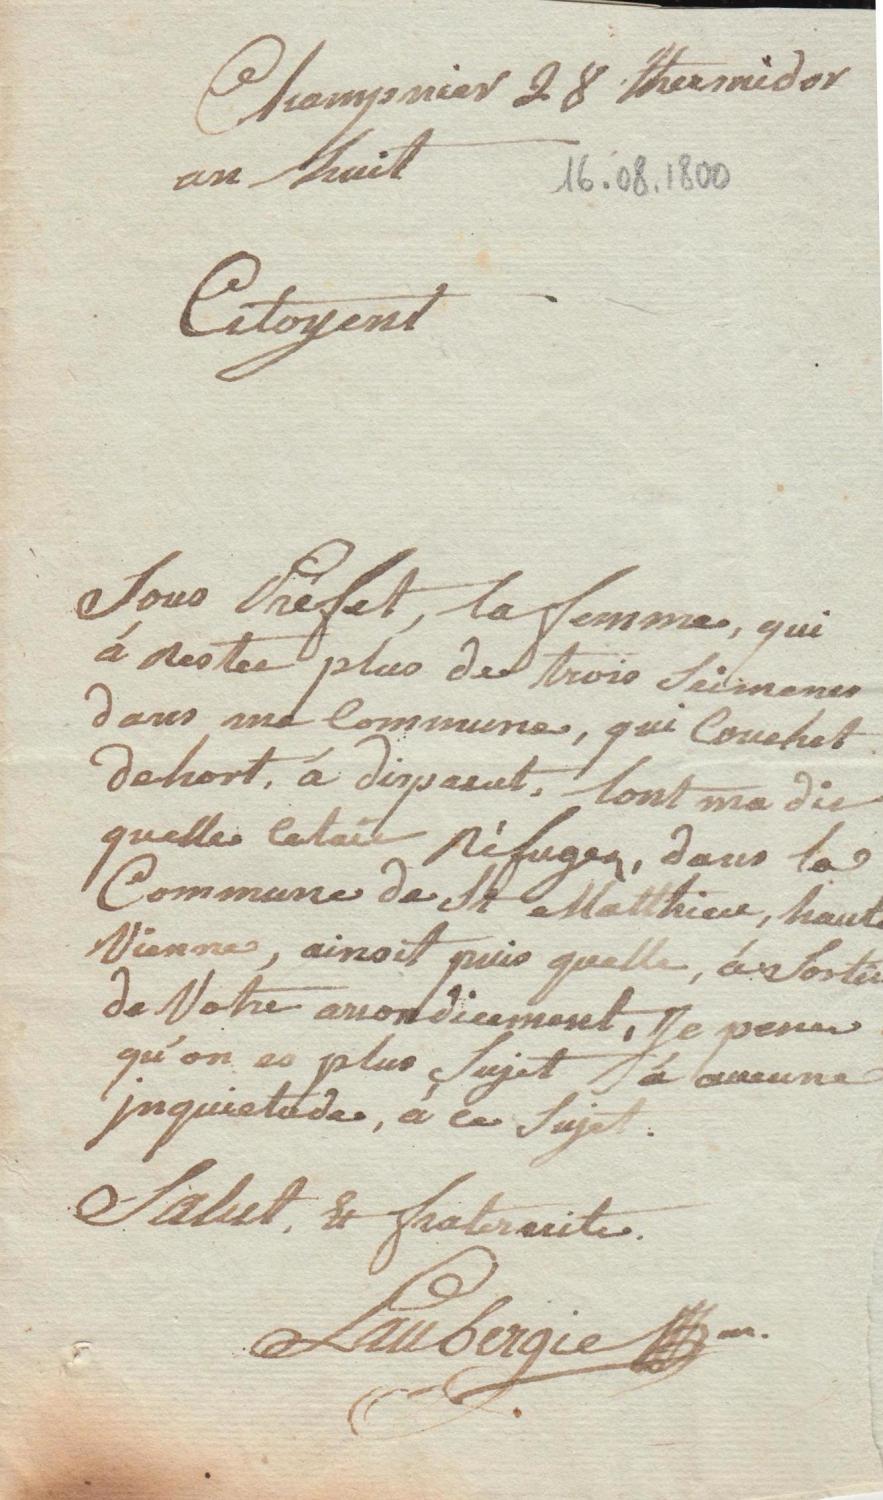 Champnier 28 thermidor
an huit 16.08.1800
Citoyent
Sous Préfet, la femme, qui
á Restee plus de trois Seimenes
dans ma Commune, qui Couchet
dehort, á disparut, lont ma dit
quelle Cetait Réfugez, dans la
Commune de St Matthieu, haute
Vienne, ainsit puis quelle, á Sortie
de Votre arrondicement, Je pense
qu'on es plus Sujet á aucune
jnquietude, á ce Sujet.
Salut, & fraternite.
Laubergie